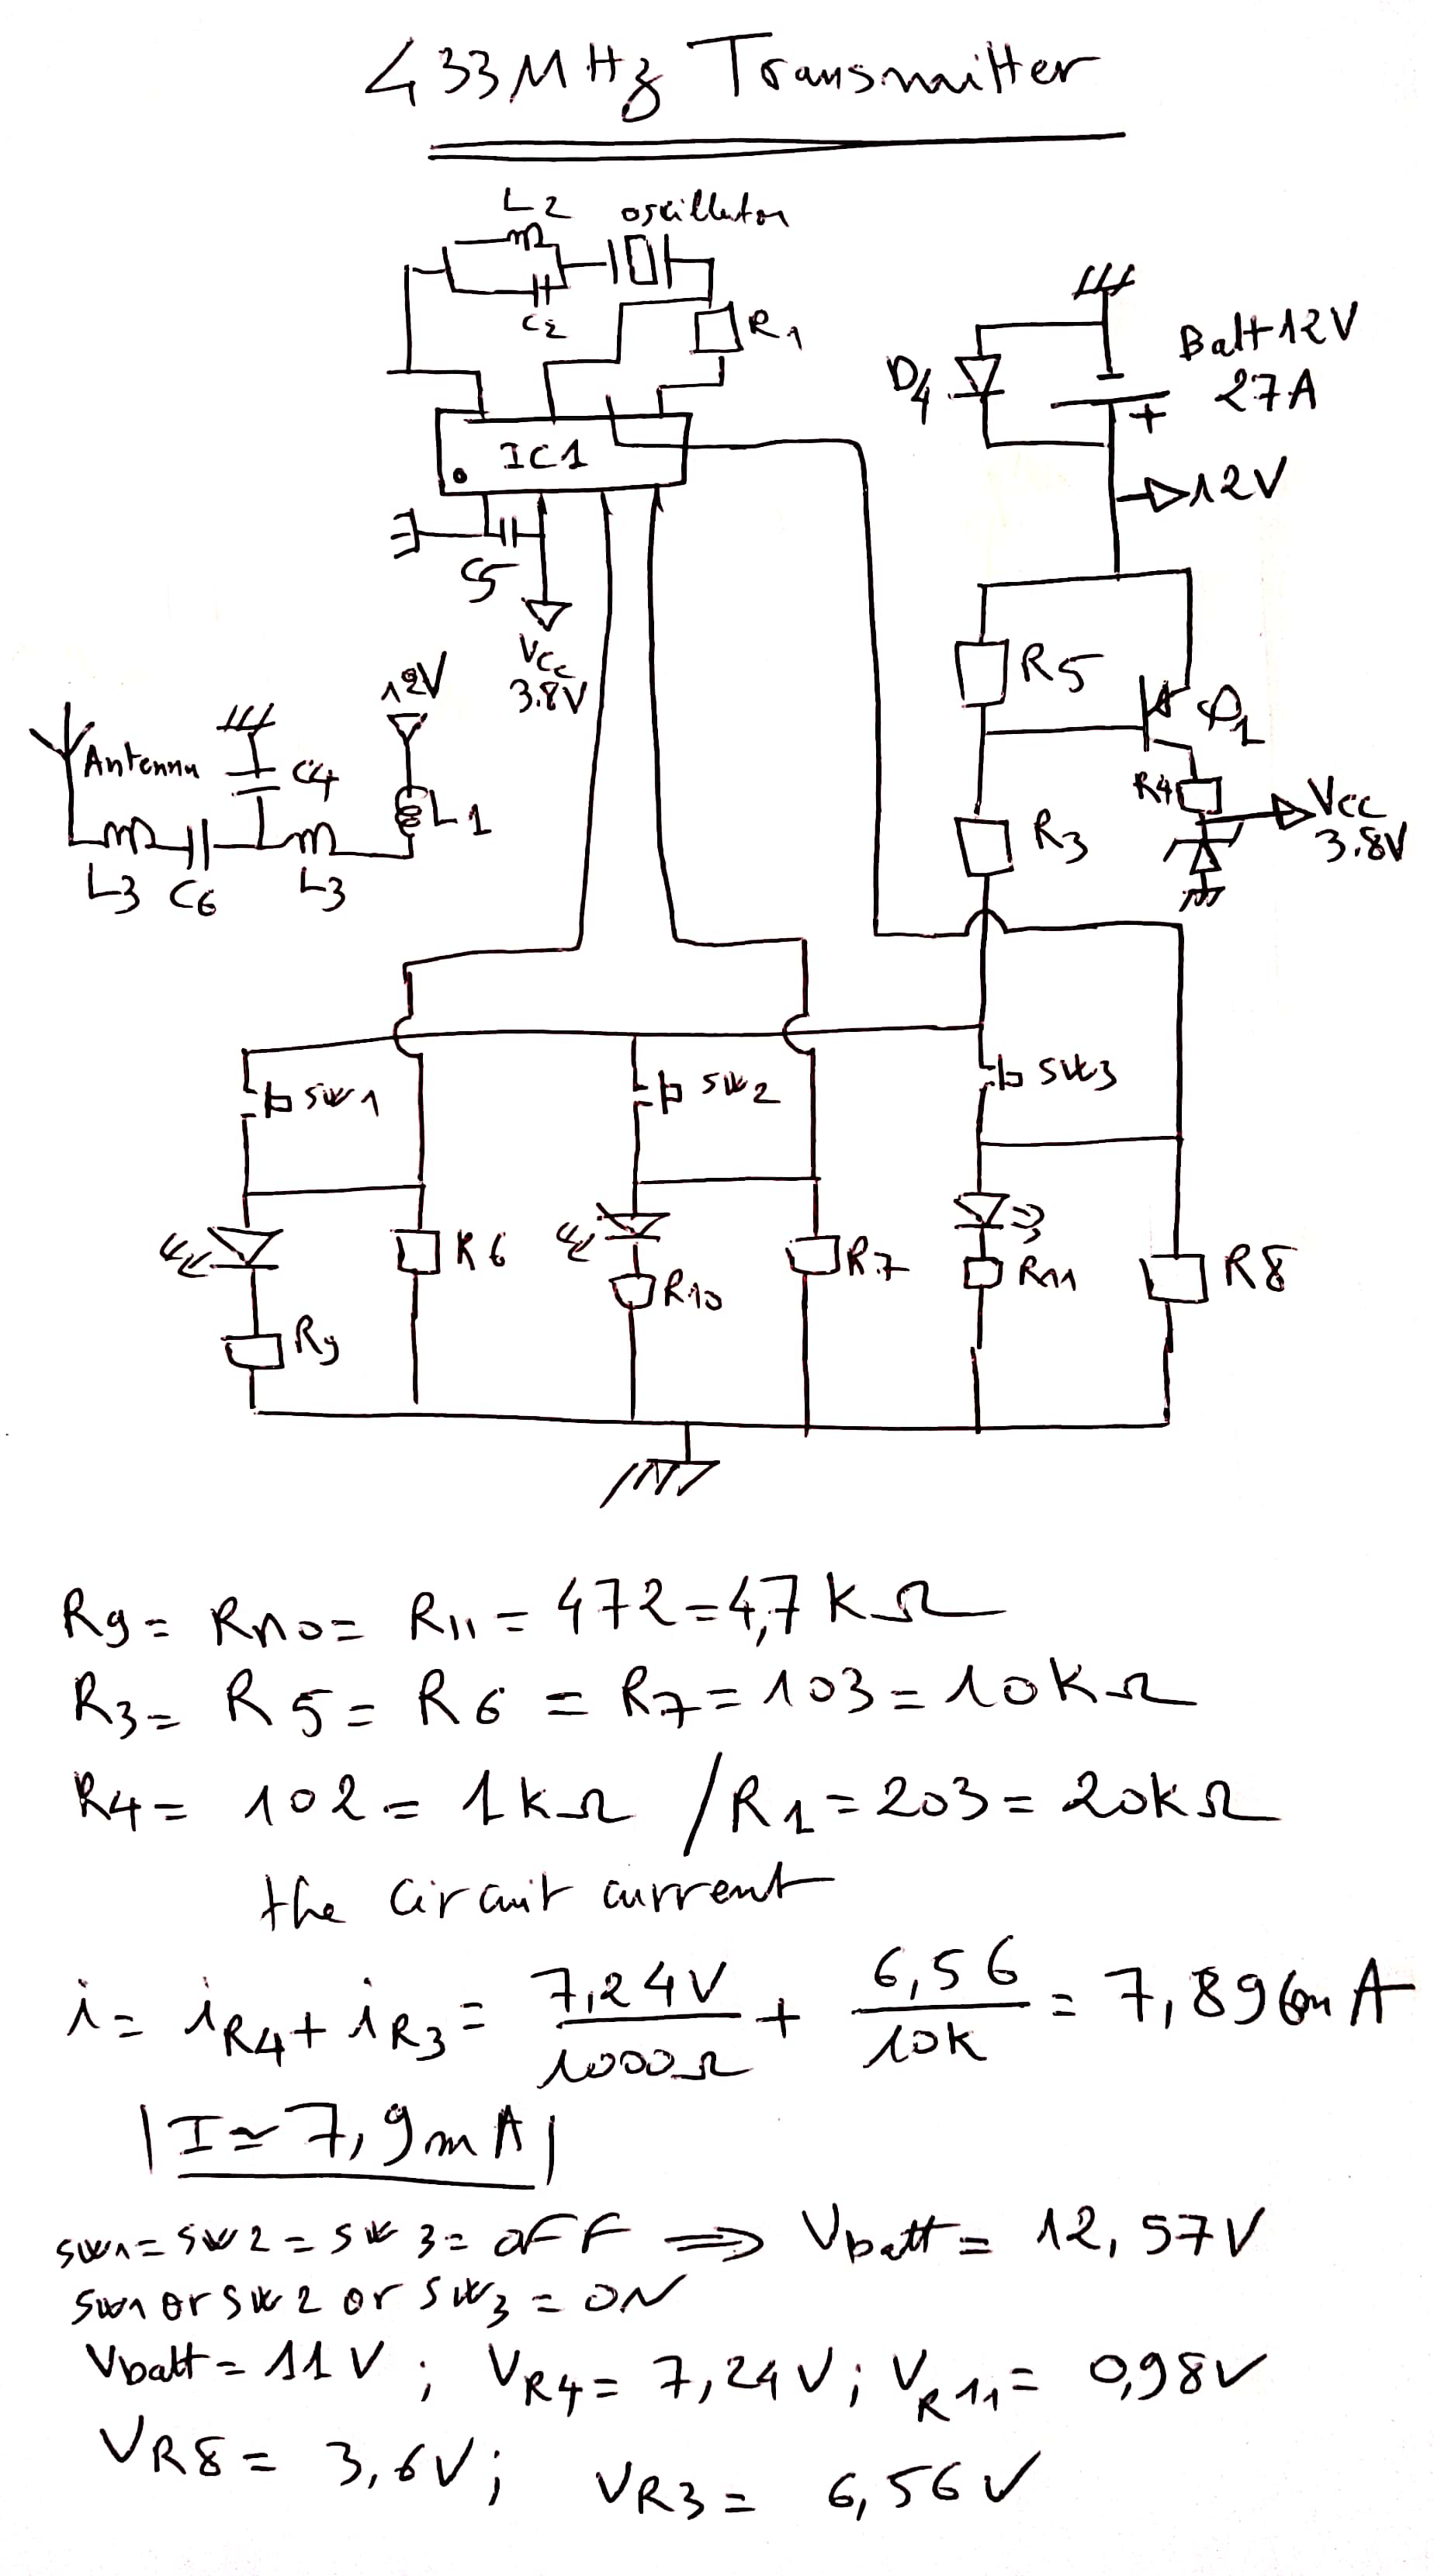 433MHz Transmitter
L2 oscillator
C2
R1
Batt 12V
27A
D4
+
IC1
12V
C5
Vcc
3.8V
R5
Q1
12V
Antenna
C4
L1
R4
Vcc
3.8V
R3
L3 C6 L3
SW1
SW2
SW3
R6
R7
R8
R9
R10
R11
R9 = R10 = R11 = 472 = 4,7 KΩ
R3 = R5 = R6 = R7 = 103 = 10KΩ
R4 = 102 = 1kΩ / R1 = 203 = 20kΩ
the circuit current
i = iR4 + iR3 = 7,24V/1000Ω + 6,56/10K = 7,896mA
|I ≃ 7,9mA|
SW1 = SW2 = SW3 = OFF ⟹ Vbatt = 12,57V
SW1 or SW2 or SW3 = ON
Vbatt = 11V ; VR4 = 7,24V ; VR11 = 0,98V
VR8 = 3,6V ; VR3 = 6,56V